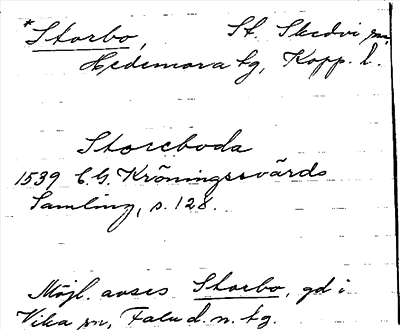 *Storbo, St. Skedvi sn,
Hedemora tg, Kopp. l.
Storeboda
1539 C. G. Kröningssvärds
Samling, s. 128.
Möjl. avses Storbo, gd i
Vika sn, Falu d. n. tg.